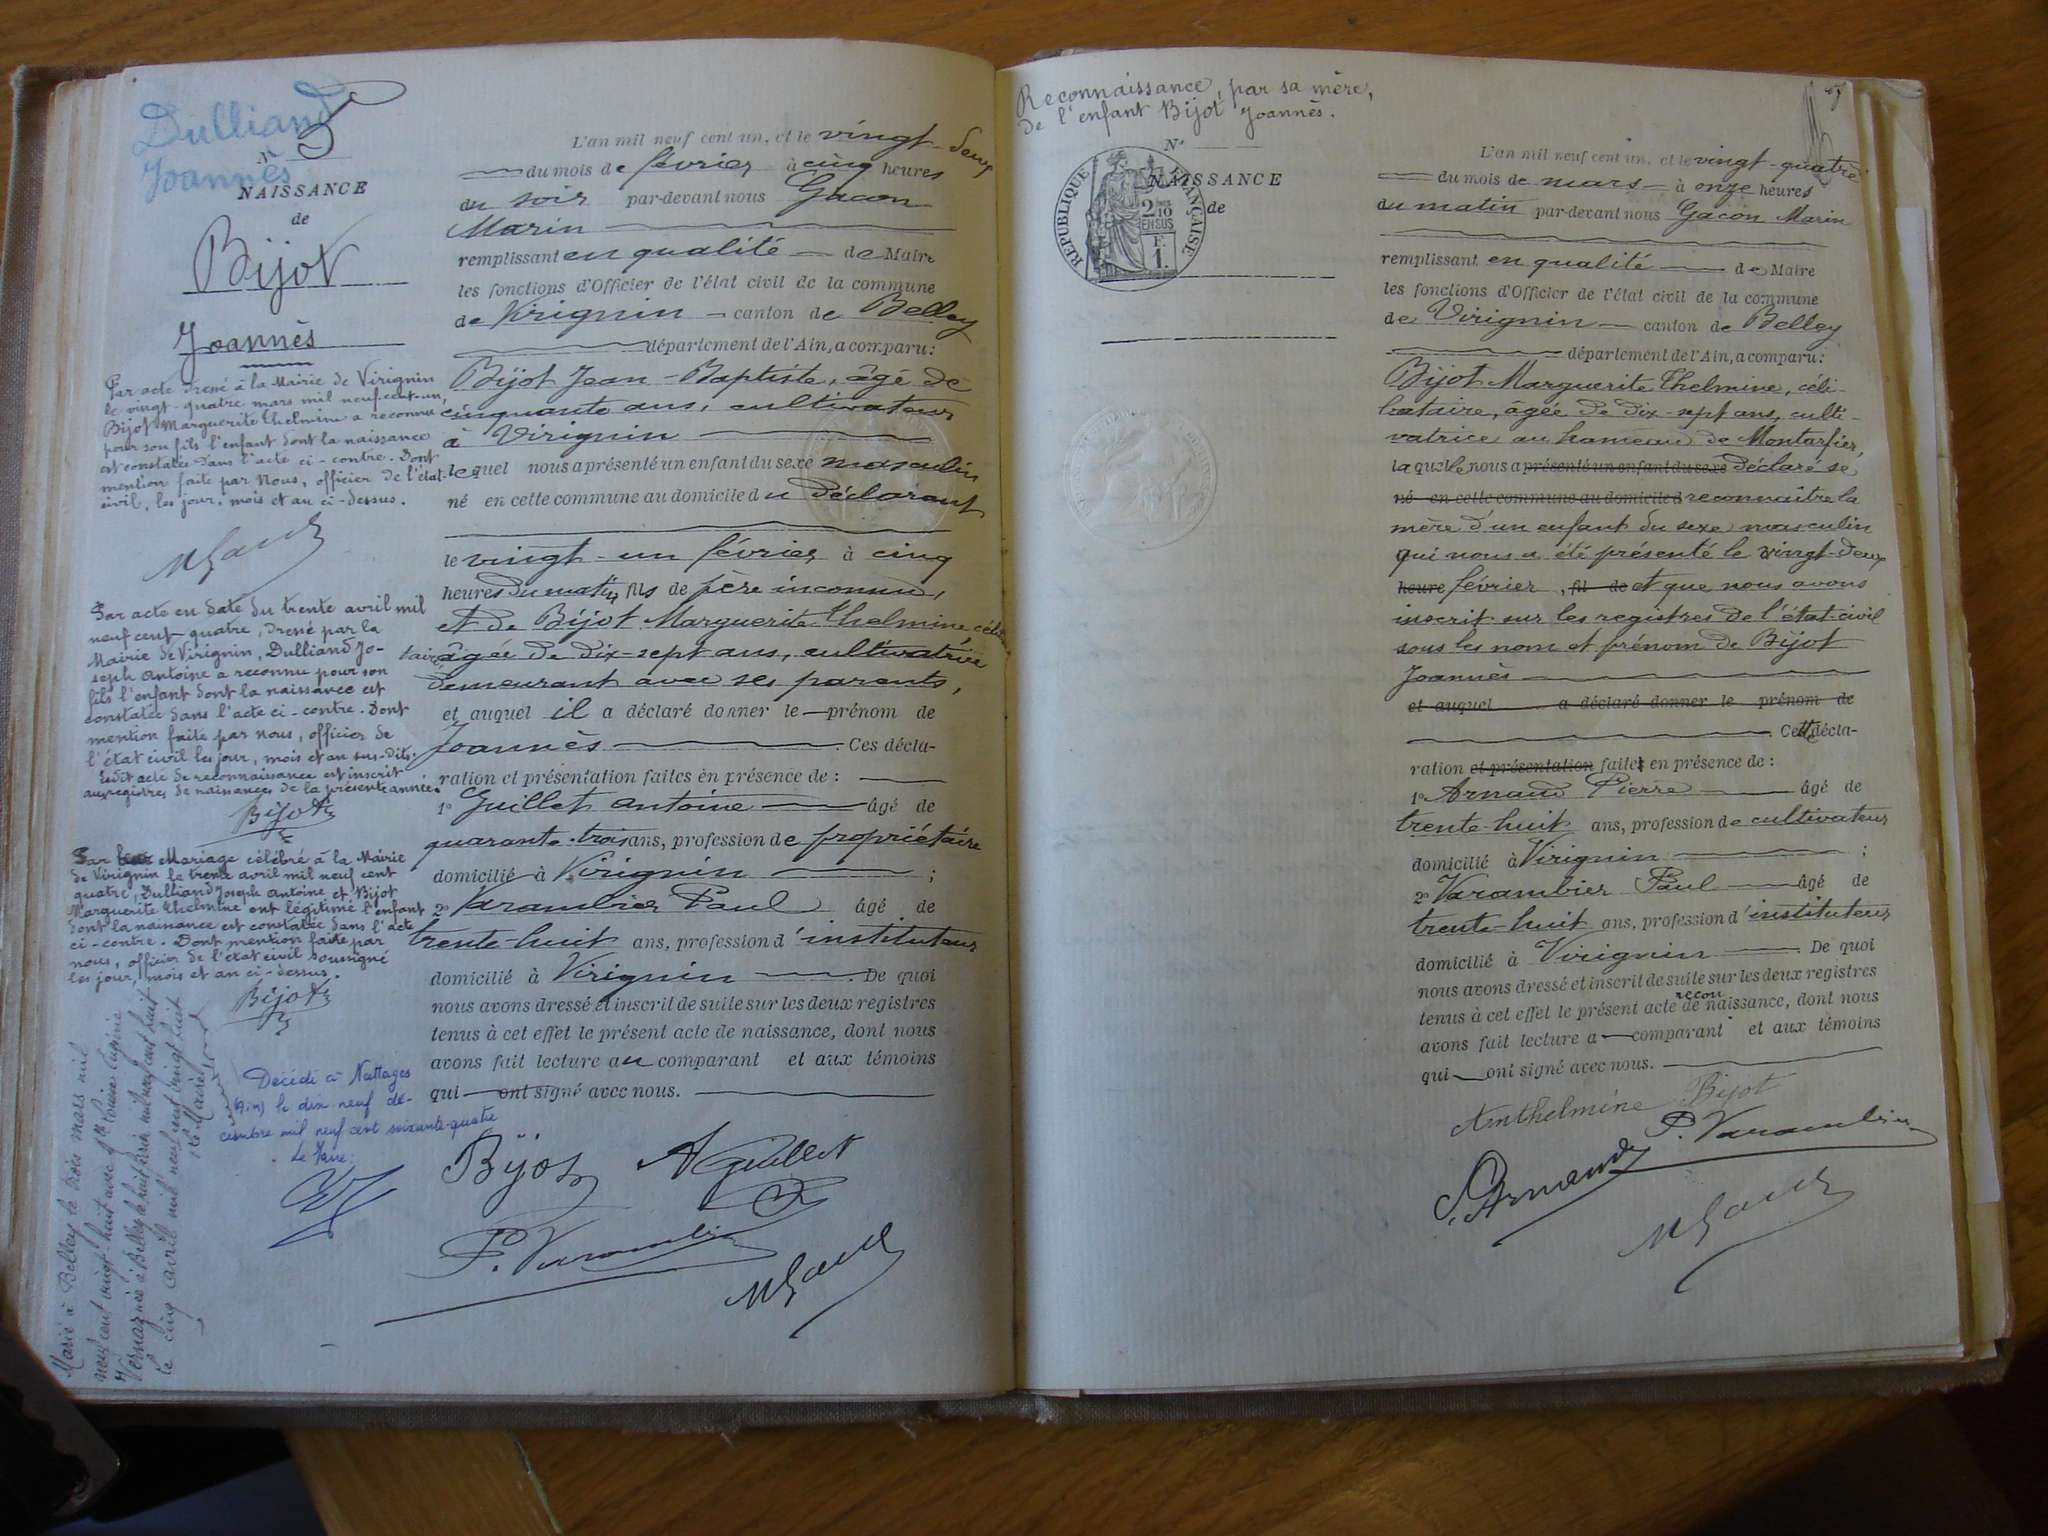 Dulliand
Joannès
N° 5
NAISSANCE
de
Bijot
Joannès
Par acte dressé à la Mairie de Virignin
le vingt-quatre mars mil neuf cent un,
Bijot Marguerite Thelmine a reconnu
pour son fils l'enfant dont la naissance
est constatée dans l'acte ci-contre. Dont
mention faite par Nous, officier de l'état-
civil, les jour, mois et an ci-dessus.
MGacon
Par acte en date du trente avril mil
neuf cent quatre, dressé par la
Mairie de Virignin, Dulliand Jo-
seph Antoine a reconnu pour son
fils l'enfant dont la naissance est
constatée dans l'acte ci-contre. Dont
mention faite par nous, officier de
l'état civil les jour, mois et an sus-dits.
Ledit acte de reconnaissance est inscrit
aux registres de naissances de la présente année.
Bijot
Par Mariage célébré à la Mairie
de Virignin le trente avril mil neuf cent
quatre, Dulliand Joseph Antoine et Bijot
Marguerite Thelmine ont légitimé l'enfant
dont la naissance est constatée dans l'acte
ci-contre. Dont mention faite par
nous, officier de l'état civil soussigné
les jour, mois et an ci-dessus.
Bijot
Marié à Belley le trois mars mil
neuf cent vingt-huit avec
Vernaz née à Belley le huit mil neuf cent huit
le cinq avril mil neuf cent vingt huit
Le Maire
Décédé à Nattages
(Ain) le dix neuf dé-
cembre mil neuf cent soixante-quatre
Le Maire:
L'an mil neuf cent un, et le vingt-deux
du mois de février à cinq heures
du soir par-devant nous Gacon
Marin
remplissant en qualité de Maire
les fonctions d'Officier de l'état civil de la commune
de Virignin canton de Belley
département de l'Ain, a comparu:
Bijot Jean-Baptiste, âgé de
cinquante ans, cultivateur
à Virignin
lequel nous a présenté un enfant du sexe masculin
né en cette commune au domicile du déclarant
le vingt-un février à cinq
heures du matin, fils de père inconnu,
et de Bijot Marguerite Thelmine, céliba
taire âgée de dix-sept ans, cultivatrice
demeurant avec ses parents,
et auquel il a déclaré donner le prénom de
Joannès Ces décla-
ration et présentation faites en présence de:
1° Guillet Antoine âgé de
quarante-trois ans, profession de propriétaire
domicilié à Virignin ;
2° Varambier Paul âgé de
trente-huit ans, profession d'instituteur
domicilié à Virignin De quoi
nous avons dressé et inscrit de suite sur les deux registres
tenus à cet effet le présent acte de naissance, dont nous
avons fait lecture au comparant et aux témoins
qui ont signé avec nous.
Bijot A Guillet
P. Varambier
MGacon
Reconnaissance, par sa mère,
de l'enfant Bijot Joannès.
N°
NAISSANCE
de
REPUBLIQUE FRANÇAISE
2/10 EN SUS
F. 1.
L'an mil neuf cent un, et le vingt-quatre
du mois de mars à onze heures
du matin par-devant nous Gacon Marin
remplissant en qualité de Maire
les fonctions d'Officier de l'état civil de la commune
de Virignin canton de Belley
département de l'Ain, a comparu:
Bijot Marguerite Thelmine, céli-
bataire, âgée de dix-sept ans, culti-
vatrice au hameau de Montarfier,
laquelle nous a présenté un enfant du sexe déclaré se
né en cette commune au domicile d reconnaître la
mère d'un enfant du sexe masculin
qui nous a été présenté le vingt-deux
heure février, fil de et que nous avons
inscrit sur les registres de l'état civil
sous les nom et prénom de Bijot
Joannès
et auquel a déclaré donner le prénom de
Cette décla-
ration et présentation faite en présence de:
1° Arnaud Pierre âgé de
trente-huit ans, profession de cultivateur
domicilié à Virignin ;
2° Varambier Paul âgé de
trente-huit ans, profession d'instituteur
domicilié à Virignin De quoi
nous avons dressé et inscrit de suite sur les deux registres
recon
tenus à cet effet le présent acte de naissance, dont nous
avons fait lecture a comparant et aux témoins
qui ont signé avec nous.
Anthelmine Bijot
P. Varambier
P. Arnaud
MGacon